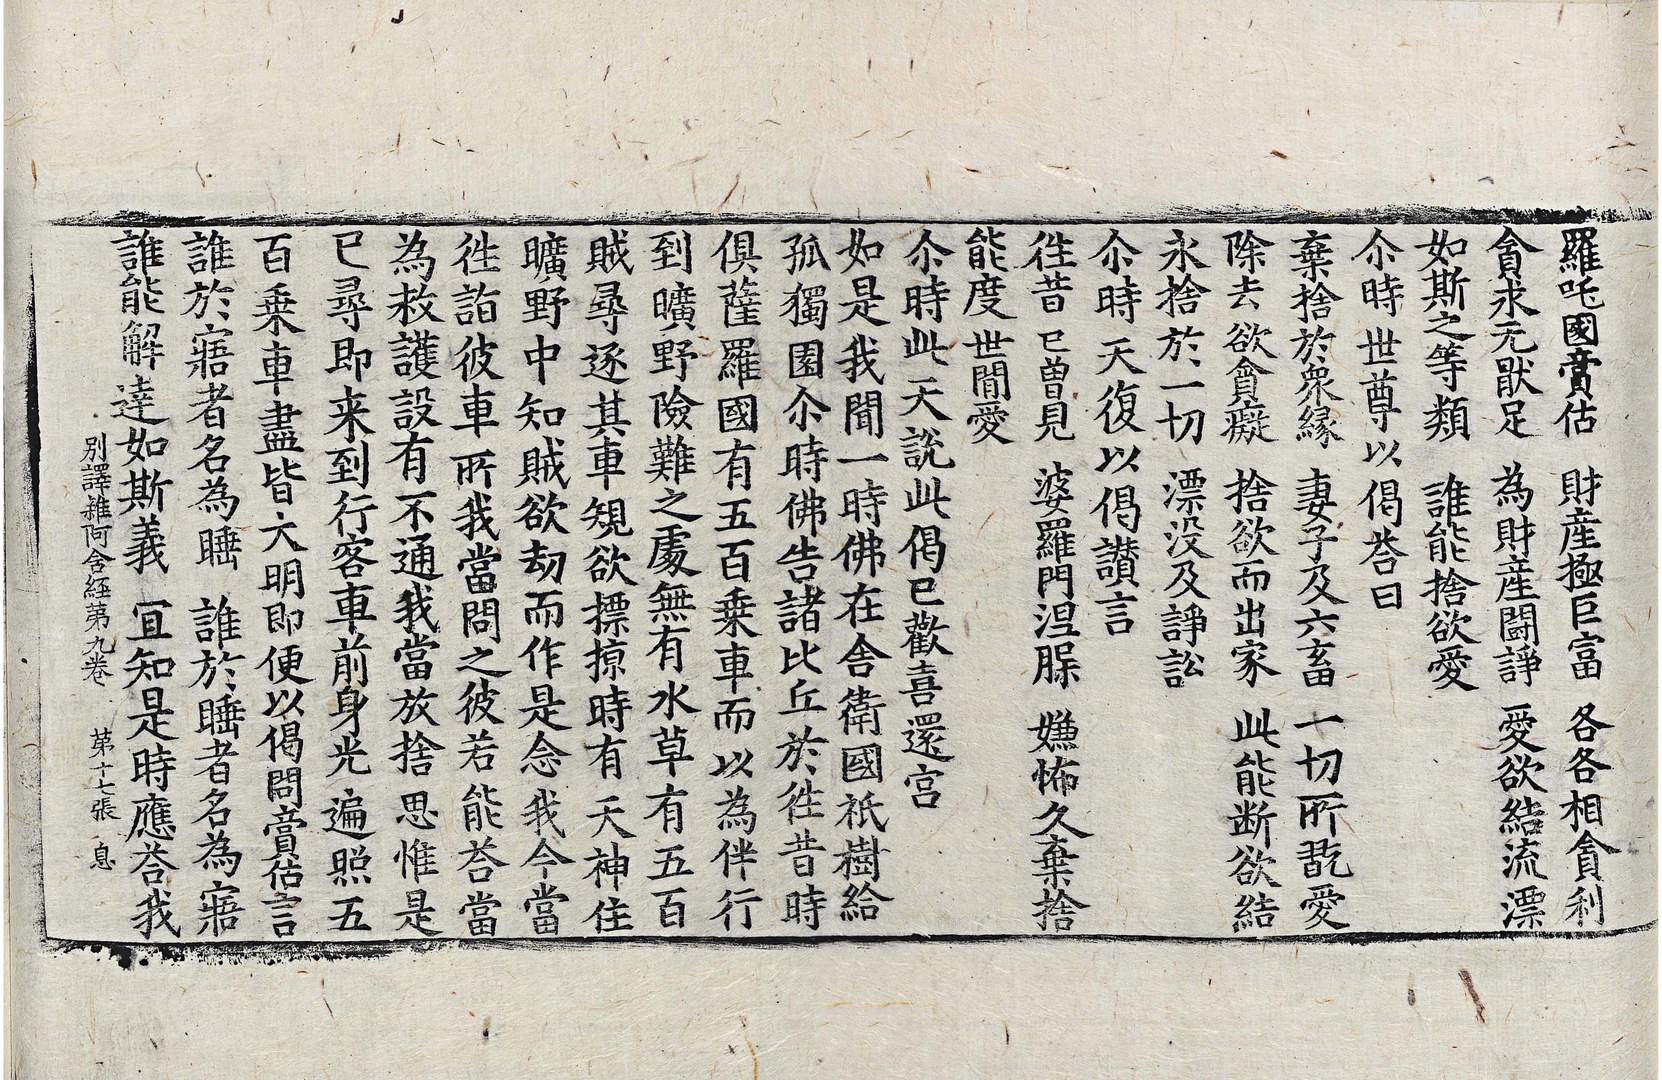 羅吒國啇估　財産極巨富　各各相貪利
貪求无猒足　為財産鬪諍　愛欲結流漂
如斯之等類　誰能捨欲愛
尒時世尊以偈荅曰
棄捨於衆縁　妻子及六畜　一切所翫愛
除去欲貪癡　捨欲而出家　此能断欲結
永捨於一切　漂没及諍訟
尒時天復以偈讃言
徃昔已曽見　婆羅門涅脲　嫌怖久棄捨
能度世間愛
尒時此天說此偈已歡喜還宮
如是我聞一時佛在舎衛國祇樹給
孤獨園尒時佛告諸比丘於徃昔時
俱薩羅國有五百乗車而以為伴行
到曠野險難之䖏無有水草有五百
賊尋逐其車䂓欲摽掠時有天神住
曠野中知賊欲劫而作是念我今當
徃詣彼車所我當問之彼若能荅當
為救護設有不通我當放捨思惟是
已尋即来到行客車前身光遍照五
百乗車盡皆大明即便以偈問賣估言
誰於寤者名為睡　誰於睡者名為寤
誰能解達如斯義　宜知是時應荅我
别譯雜阿含経苐九卷　苐十七張　息